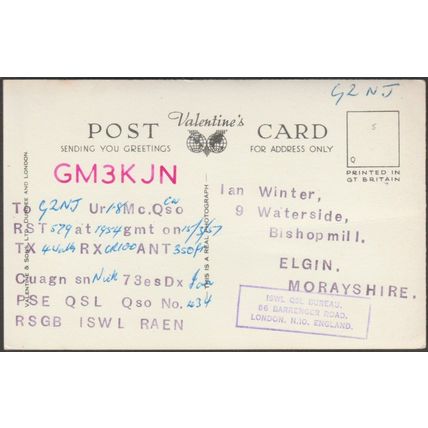 G2NJ
Valentine's
POST CARD
SENDING YOU GREETINGS
FOR ADDRESS ONLY
S
Q
PRINTED IN
GT BRITAIN
VALENTINE & SONS, LTD., DUNDEE AND LONDON.
THIS IS A REAL PHOTOGRAPH
GM3KJN
To G2NJ Ur 1·8 Mc. Qso Cw
RST 579 at 1954 gmt on 15/3/57
TX 4 watts RX CR100 ANT 350ft
Cuagn sn Nick 73es Dx
PSE QSL Qso No. 434
RSGB ISWL RAEN
Ian Winter,
9 Waterside,
Bishopmill,
ELGIN,
MORAYSHIRE.
ISWL QSL BUREAU,
86 BARRENGER ROAD,
LONDON, N.10. ENGLAND.